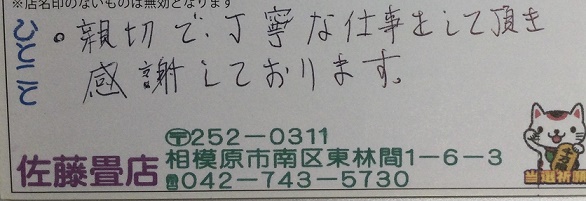 ※店名印のないものは無効となります
ひとこと
。親切で、丁寧な仕事をして頂き
感謝しております。
佐藤畳店
〒252-0311
相模原市南区東林間1-6-3
☎042-743-5730
千万両
当選祈願